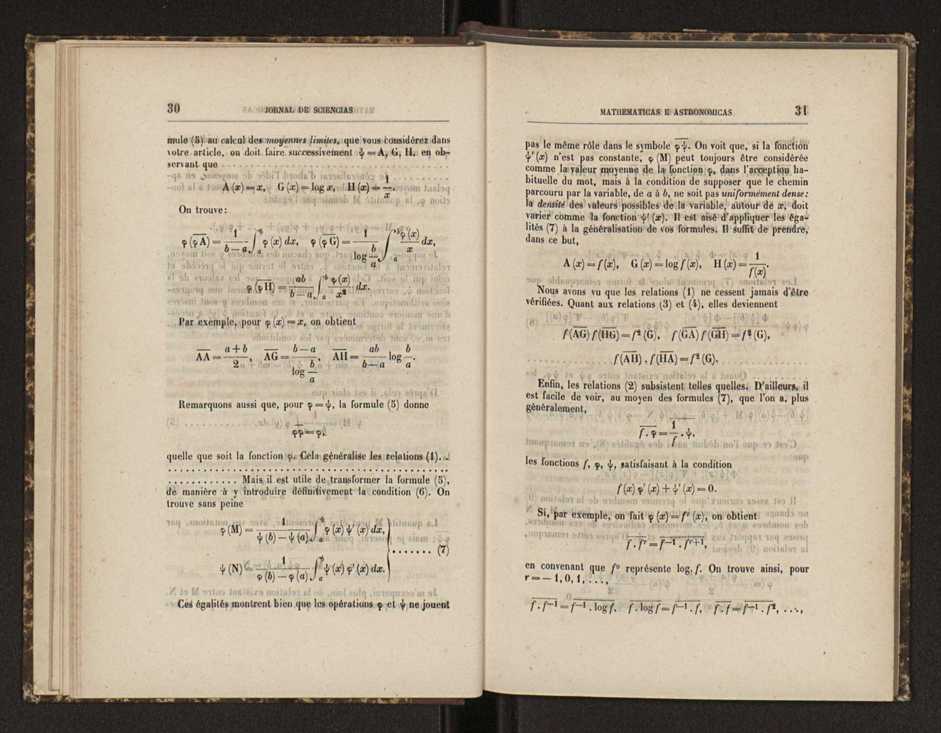 30 JORNAL DE SCIENCIAS
mule (5) au calcul des moyennes limites, que vous considérez dans
votre article, on doit faire successivement ψ = A, G, H, en ob-
servant que
A (x) = x, G (x) = log x, H (x) = 1/x.
On trouve:
φ (φA) = 1/(b − a) ∫_a^b φ (x) dx, φ (φG) = 1/(log b/a) ∫_a^b φ (x)/x dx,
φ (φH) = ab/(b − a) ∫_a^b φ (x)/x² dx.
Par exemple, pour φ (x) = x, on obtient
AA = (a + b)/2, AG = (b − a)/(log b/a), AH = ab/(b − a) log b/a.
Remarquons aussi que, pour φ = ψ, la formule (5) donne
φφ = φ,
quelle que soit la fonction φ. Cela généralise les relations (1). .
. . . . . . . . . . . . . . . . . . . . . . . . . . . . . . . . . . . . . . . .
. . . . . . . . . . . . Mais il est utile de transformer la formule (5),
de manière à y introduire définitivement la condition (6). On
trouve sans peine
φ (M) = 1/(ψ (b) − ψ (a)) ∫_a^b φ (x) ψ′ (x) dx,
. . . . . . . (7)
ψ (N) = 1/(φ (b) − φ (a)) ∫_a^b ψ (x) φ′ (x) dx.
Ces égalités montrent bien que les opérations φ et ψ ne jouent
MATHEMATICAS E ASTRONOMICAS 31
pas le même rôle dans le symbole φψ. On voit que, si la fonction
ψ′ (x) n'est pas constante, φ (M) peut toujours être considérée
comme la valeur moyenne de la fonction φ, dans l'acception ha-
bituelle du mot, mais à la condition de supposer que le chemin
parcouru par la variable, de a à b, ne soit pas uniformément dense:
la densité des valeurs possibles de la variable, autour de x, doit
varier comme la fonction ψ′ (x). Il est aisé d'appliquer les éga-
lités (7) à la généralisation de vos formules. Il suffit de prendre,
dans ce but,
A (x) = f (x), G (x) = log f (x), H (x) = 1/f (x).
Nous avons vu que les relations (1) ne cessent jamais d'être
vérifiées. Quant aux relations (3) et (4), elles deviennent
f (AG) f (HG) = f² (G), f (GA) f (GH) = f² (G),
f (AH) . f (HA) = f² (G),
Enfin, les relations (2) subsistent telles quelles. D'ailleurs, il
est facile de voir, au moyen des formules (7), que l'on a, plus
généralement,
f . φ = 1/f . ψ,
les fonctions f, φ, ψ, satisfaisant à la condition
f (x) φ′ (x) + ψ′ (x) = 0.
Si, par exemple, on fait φ (x) = fʳ (x), on obtient
f . fʳ = f⁻¹ . fʳ⁺¹,
en convenant que f⁰ représente log. f. On trouve ainsi, pour
r = − 1, 0, 1, . . .,
f . f⁻¹ = f⁻¹ . log f, f . log f = f⁻¹ . f, f . f = f⁻¹ . f², . . .,